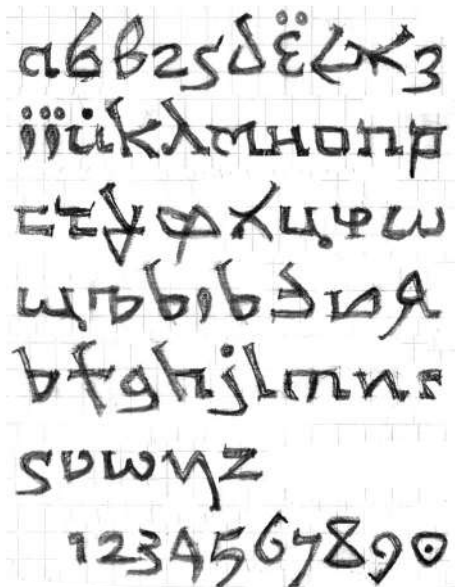 абвгѕдёжз
іїйклмнопр
стуфхцчш
щъыьэия
bfghjlmnr
svwyz
1234567890